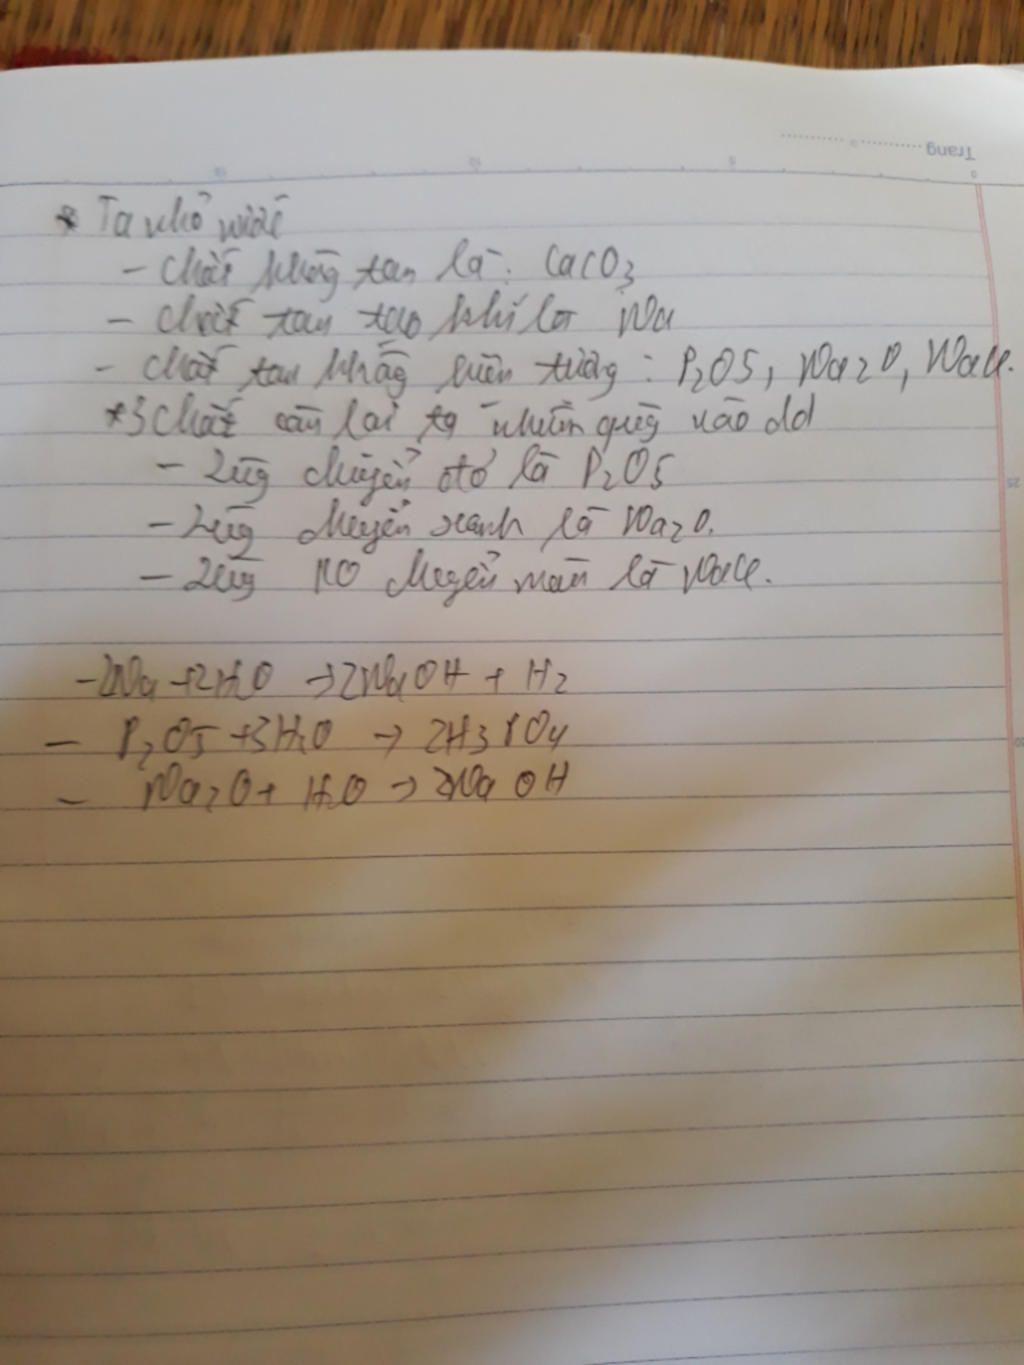 Trang
* Ta nhỏ nước
- chất không tan là: CaCO3
- chất tan tạo khí là Na
- chất tan không hiện tượng: P2O5, Na2O, NaCl.
*3 chất còn lại ta nhúng quỳ vào dd
- quỳ chuyển đỏ là P2O5
- quỳ chuyển xanh là Na2O.
- quỳ ko chuyển màu là NaCl.
- 2Na + 2H2O → 2NaOH + H2
- P2O5 + 3H2O → 2H3PO4
- Na2O + H2O → 2NaOH